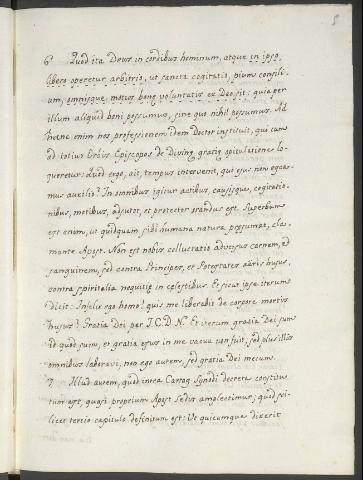 5
6 Quod ita Deus in cordibus hominum, atque in ipso
libero operetur arbitrio, ut sancta cogitatio, pium consili-
um, omnisque motus bonę voluntatis ex Deo sit: quia per
illum aliquid boni possumus, sine quo nihil possumus. Ad
hanc enim nos professionem idem Doctor instituit, qui cum
ad totius Orbis Episcopos de Divinę gratię opitulatione lo-
queretur: Quod ergo, ait, tempus intervenit, quo ejus non egea-
mus auxilio? In omnibus igitur actibus, causisque, cogitatio-
nibus, motibus, adjutor, et protector orandus est. Superbum
est enim, ut quidquam sibi humana natura pręsumat, cla-
mante Apost. Non est nobis colluctatio adversus carnem, et
sanguinem, sed contra Principes, et Potestates aëris hujus,
contra spiritalia nequitię in cęlestibus. Et sicut ipse iterum
dicit: Infelix ego homo! quis me liberabit de corpore mortis
hujus? Gratia Dei per J.C.D.N. Et iterum gratia Dei sum
id quod sum, et gratia ejus in me vacua non fuit, sed plus illis
omnibus laboravi, non ego autem, sed gratia Dei mecum.
7 Illud autem, quod intra Cartag Synodi decreta constitu-
tum est, quasi proprium Apost Sedis amplectimur; quod sci-
licet tertio capitulo definitum est: Ut quicumque dixerit